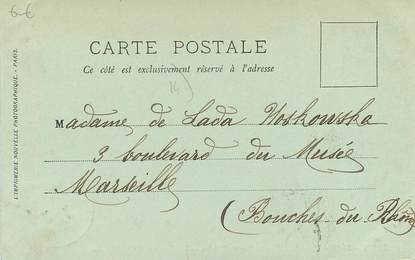 6-6
CARTE POSTALE
Ce côté est exclusivement réservé à l'adresse
Madame de Lada Noskowska
3 boulevard du Musée
Marseille
(Bouches-du-Rhône
L'IMPRIMERIE NOUVELLE PHOTOGRAPHIQUE. - PARIS.